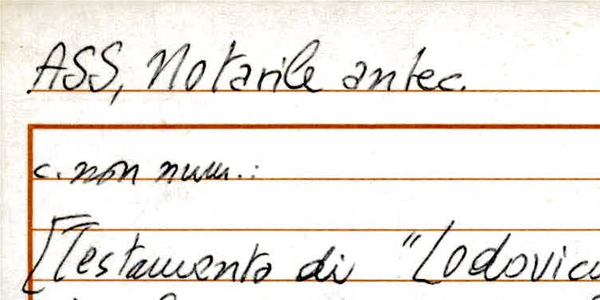 ASS, Notarile antec.
c. non num.:
[Testamento di "Lodovic